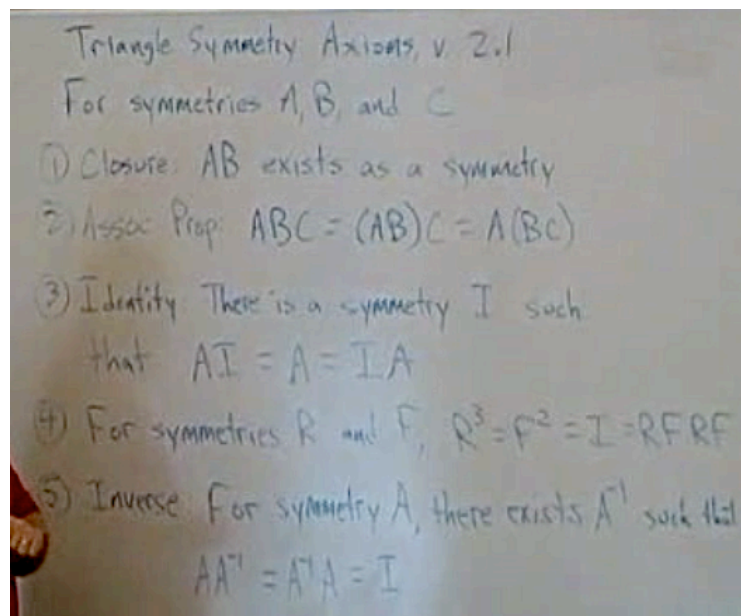 Triangle Symmetry Axioms, v 2.1
For symmetries A, B, and C
① Closure: AB exists as a symmetry
② Assoc Prop: ABC = (AB)C = A(BC)
③ Identity: There is a symmetry I such
that AI = A = IA
④ For symmetries R and F, R³ = F² = I = RFRF
⑤ Inverse: For symmetry A, there exists A⁻¹ such that
AA⁻¹ = A⁻¹A = I